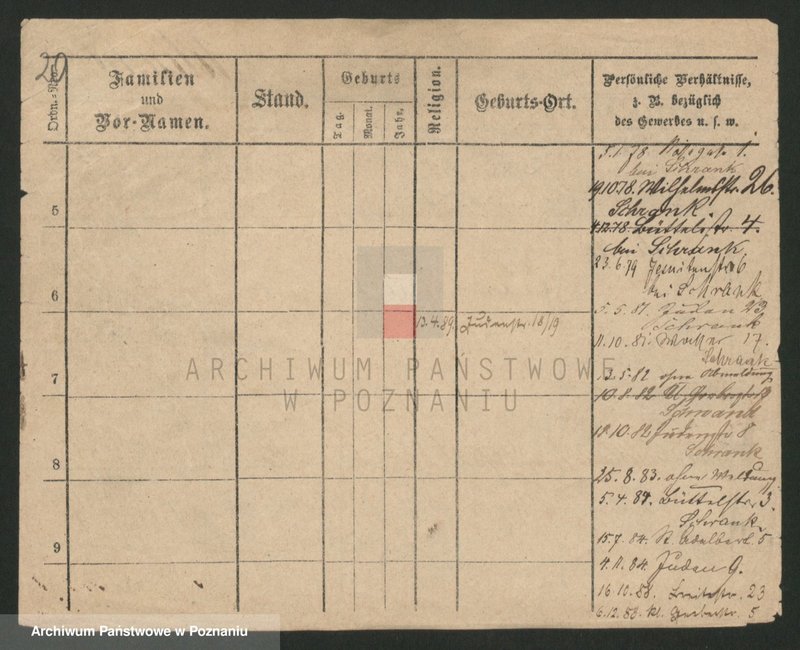 20
Ordn.=Nro.
Familien
und
Vor-Namen.
Stand.
Geburts
Tag.
Monat.
Jahr.
Religion.
Geburts-Ort.
Persönliche Verhältnisse,
z. B. bezüglich
des Gewerbes u. s. w.
5
6
7
8
9
5.1.78
bei Schrank
19.10.78. Wilhelmstr. 26.
Schrank
4.12.78. Büttelstr. 4.
bei Schrank
23.6.79 Jesuitenstr. 6
bei Schrank
5.5.81. Juden 23
Schrank
11.10.81. 17.
Schrank
12.5.82 ohne Abmeldung
10.8.82
Schrank
18.10.82 Judenstr 8
Schrank
25.8.83. ohne Meldung
5.4.84. Büttelstr. 3.
Schrank
15.7.84. St. Adalbert. 5
4.11.84. Juden 9.
16.10.88. Breitestr. 23
6.12.88. kl. Gerberstr. 5
13.4.89. Judenstr. 18/19
ARCHIWUM PAŃSTWOWE
W POZNANIU
Archiwum Państwowe w Poznaniu